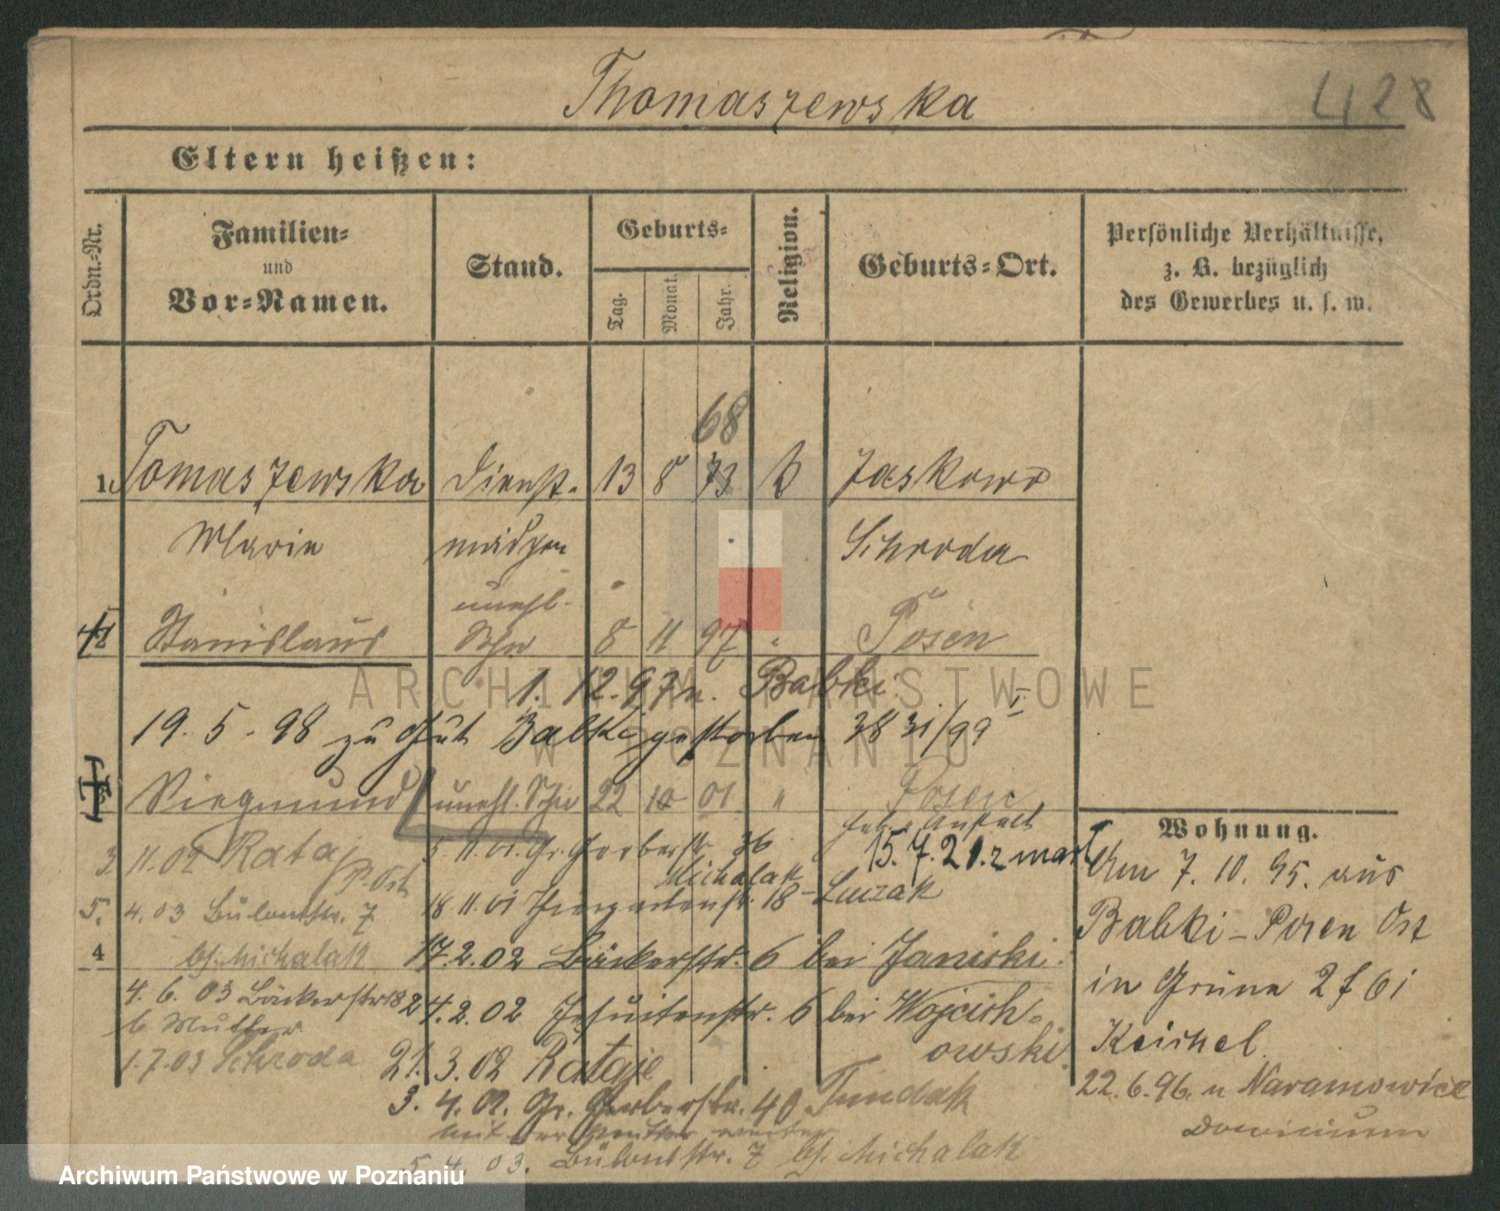 Thomaszewska
428
Eltern heißen:
Ordn.-Nr.
Familien-
und
Vor-Namen.
Stand.
Geburts-
Tag.
Monat.
Jahr.
Religion.
Geburts-Ort.
Persönliche Verhältnisse,
z. B. bezüglich
des Gewerbes u. s. w.
68
1. Tomaszewska Dienst- 13 8 73 k Jaskowo
Marie mädchen Schroda
unehl.
Stanislaus Sohn 8 11 97 " Posen
1. 12. 97 n. Babki
19. 5. 98 zu Gut Babki gestorben 3831/99
Siegmund unehl. Sohn 22 10 01 " Posen
3 11.02 Rataj P. Ost
5. 11. 01. Gr. Gerberstr. 36
Michalak
15. 7. 21. z
18 11. 01 Thiergartenstr. 18 - Luczak
5. 4. 03 Bülowstr. 7
b/. Michalak
4
17. 2. 02 Bäckerstr. 6 bei Janicki.
4. 6. 03 Bäckerstr 18
b Mutter
24. 2. 02 Jesuitenstr. 6 bei Wojciech-
owski.
1. 7. 03 Schroda
21. 3. 02 Rataje
3. 4. 02. Gr. Gerberstr. 40
mit der Mutter
5. 4. 03. Bülowstr. 7 b/. Michalak
Wohnung.
Am 7. 10. 95. aus
Babki - Posen Ost
in
22. 6. 96. n Naramowice
Dominium
ARCHIWUM PAŃSTWOWE
W POZNANIU
Archiwum Państwowe w Poznaniu